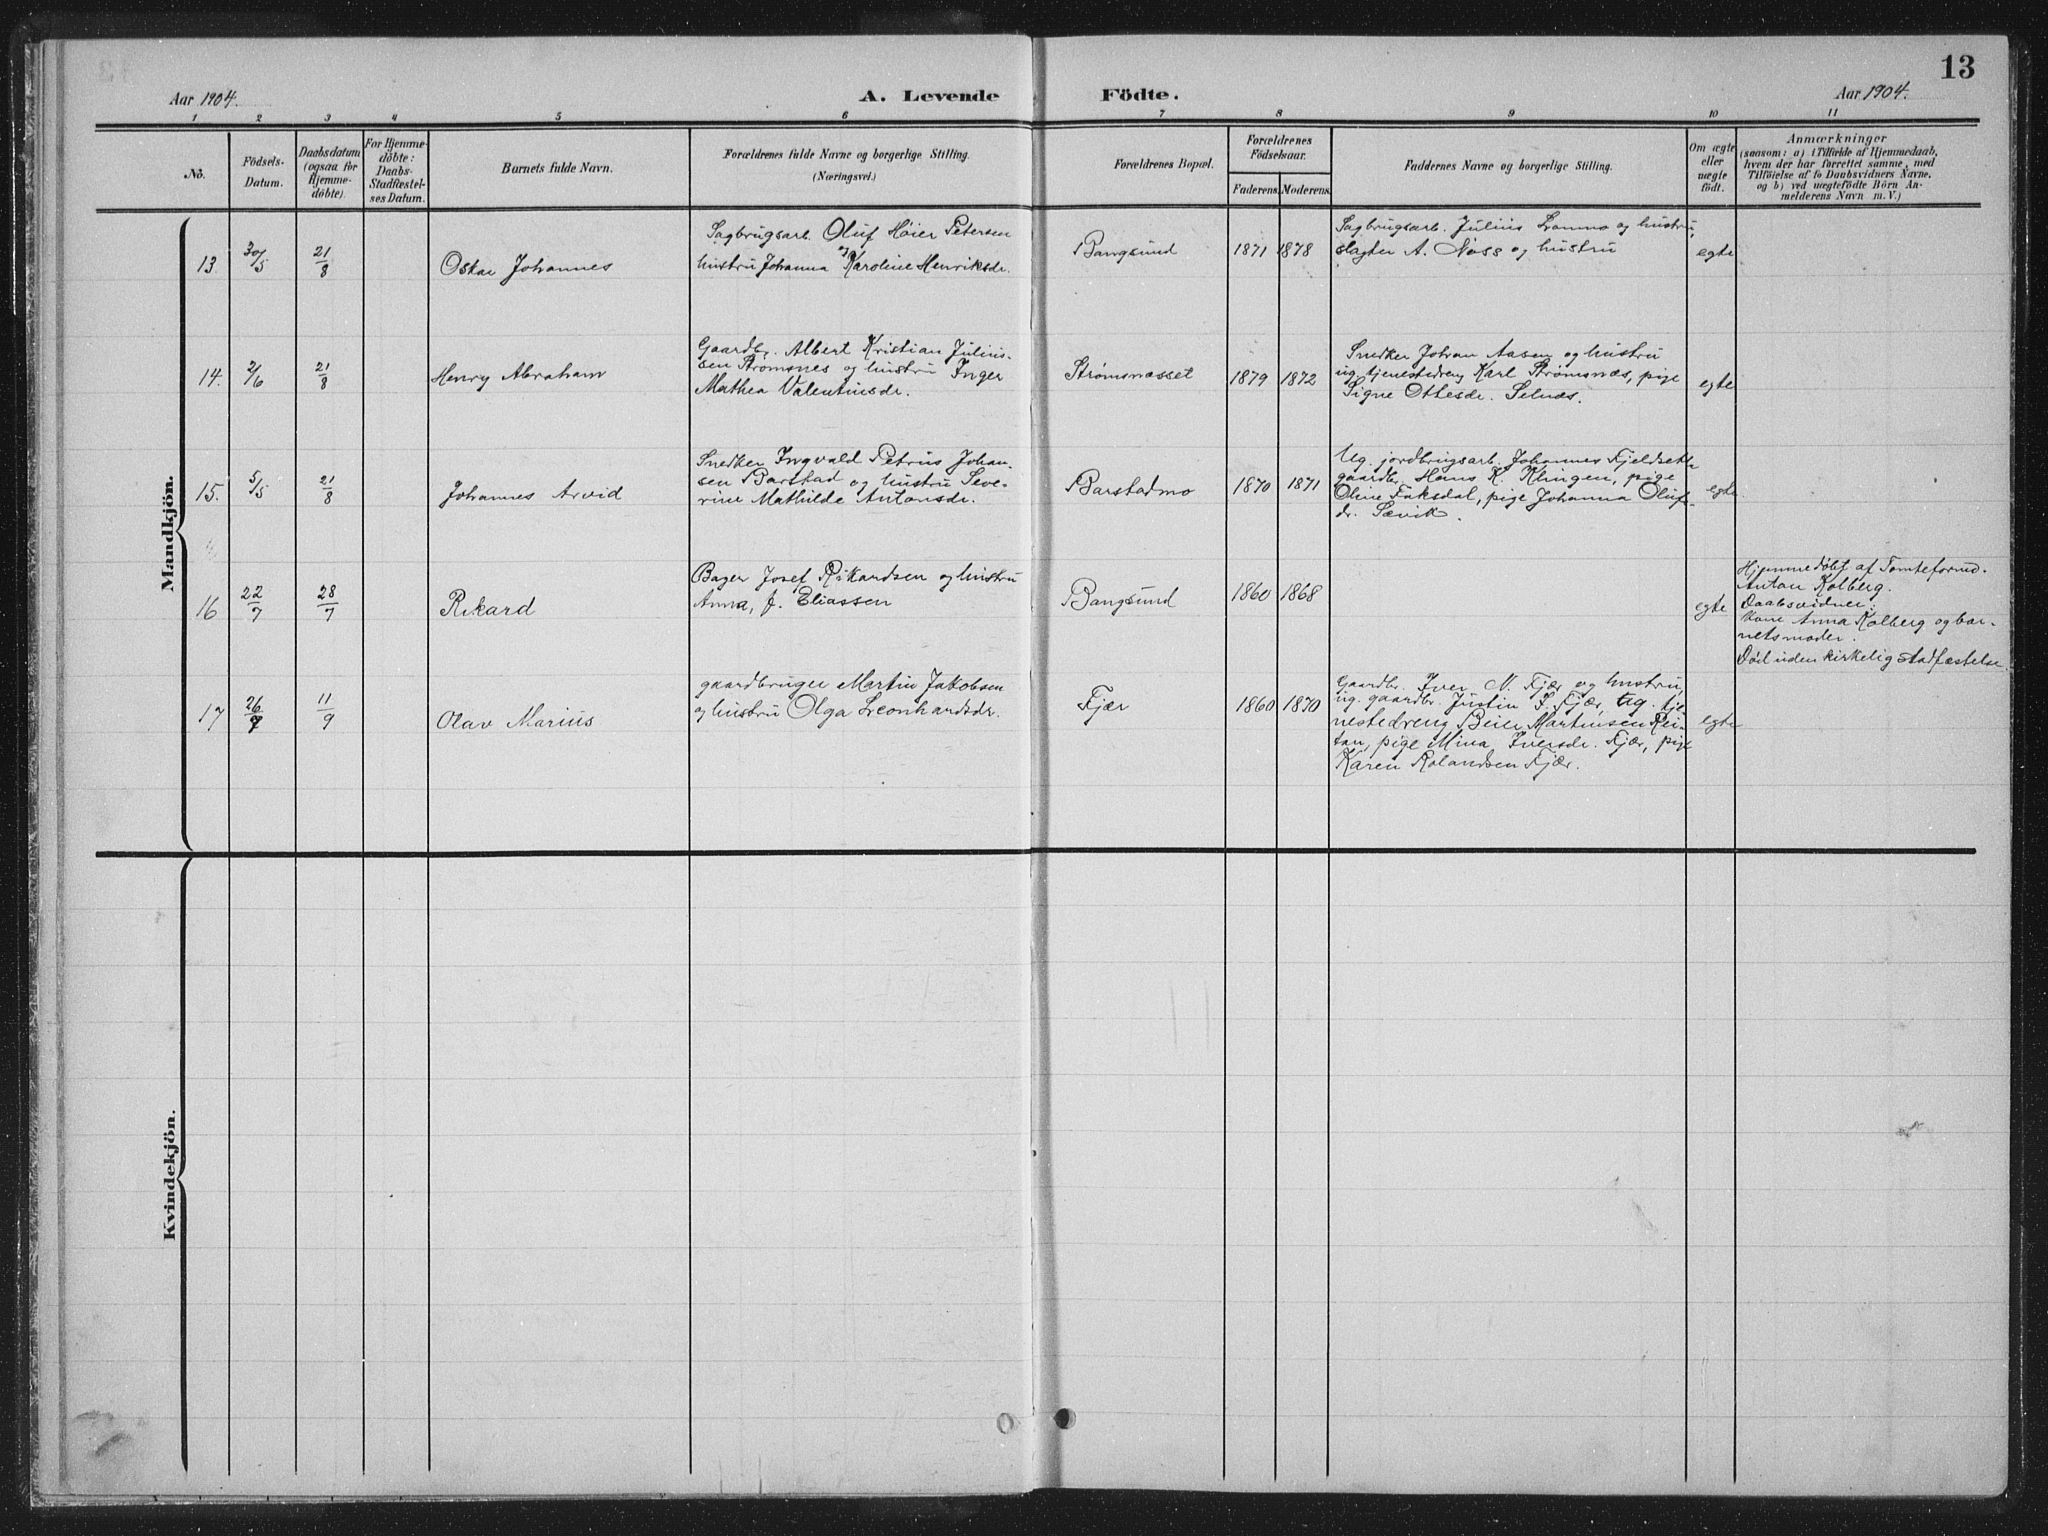 13
Aar 1904.
A. Levende Födte.
Aar 1904.
1 2 3 4 5 6 7 8 9 10 11
No.
Födsels-
Datum.
Daabsdatum
(ogsaa for
Hjemme-
döbte).
For Hjemme-
döbte:
Daabs-
Stadfæstel-
ses Datum.
Barnets fulde Navn.
Forældrenes fulde Navne og borgerlige Stilling.
(Næringsvei.)
Forældrenes Bopæl.
Forældrenes
Födselsaar.
Faderens. Moderens.
Faddernes Navne og borgerlige Stilling.
Om ægte
eller
uægte
födt.
Anmærkninger
(saasom: a) i Tilfælde af Hjemmedaab,
hvem der har forrettet samme, med
Tilföielse af to Daabsvidners Navne,
og b) ved uægtefödte Börn An-
melderens Navn m. V.)
Mandkjön.
13. 30/5 21/8
Oskar Johannes
Sagbrugsarb. Oluf Höier Petersen
og
hustru Johanna Karoline Henriksdr.
Bangsund
1871 1878
Sagbrugsarb. Julius Lommo og hustru,
slagter A. Næss og hustru
egte
14. 2/6 21/8
Henry Abraham
Gaardbr. Albert Kristian Julius-
sen Strømsnes og hustru Inger
Mathea Valentinsdr.
Strømsnæsset
1879 1872
Snedker Johan Aasen og hustru
ug. tjenestedreng Karl Strømsnæs, pige
Signe Ottesdr. Selnæs.
egte
15. 5/5 21/8
Johannes Arvid
Snedker Ingvald Petrus Johan-
sen Barstad og hustru Seve-
rine Mathilde Antonsdr.
Barstadmo
1870 1871
Ug. jordbrugsarb. Johannes
gaardbr. Hans K. Klingen, pige
Oline Faksdal, pige Johanna Olufs-
dr. Sævik.
egte
16 22/7 28/7
Rikard
Bager Josef Rikardsen og hustru
Anna, f. Eliassen
Bangsund
1860 1868
egte
Hjemmedøbt af Tomteformd.
Anton Kolberg.
Daabsvidner:
Kone Anna Kolberg og bar-
netsmoder.
Død uden kirkelig stadfæstelse.
17 26/7 11/9
Olav Marius
gaardbruger Martin Jakobsen
og hustru Olga Leonhardsdr.
Fjær
1860 1870
Gaardbr. Iver N. Fjær og hustru,
ug. gaardbr. Justin I. Fjær, ug. tje-
nestedreng Beier Martinsen Rei-
tan, pige Mina Iversdr. Fjær, pige
Karen Rolandsen Fjær.
egte
Kvindekjön.